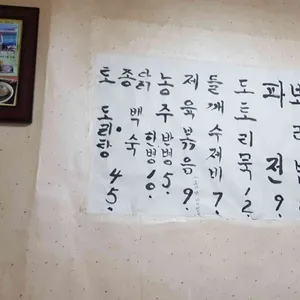 토종닭
도리탕 • 백숙
45.
농주
한병 10. 반병 5.
제육볶음 9.
들깨수제비 7.
도토리묵 12.
파전 9.